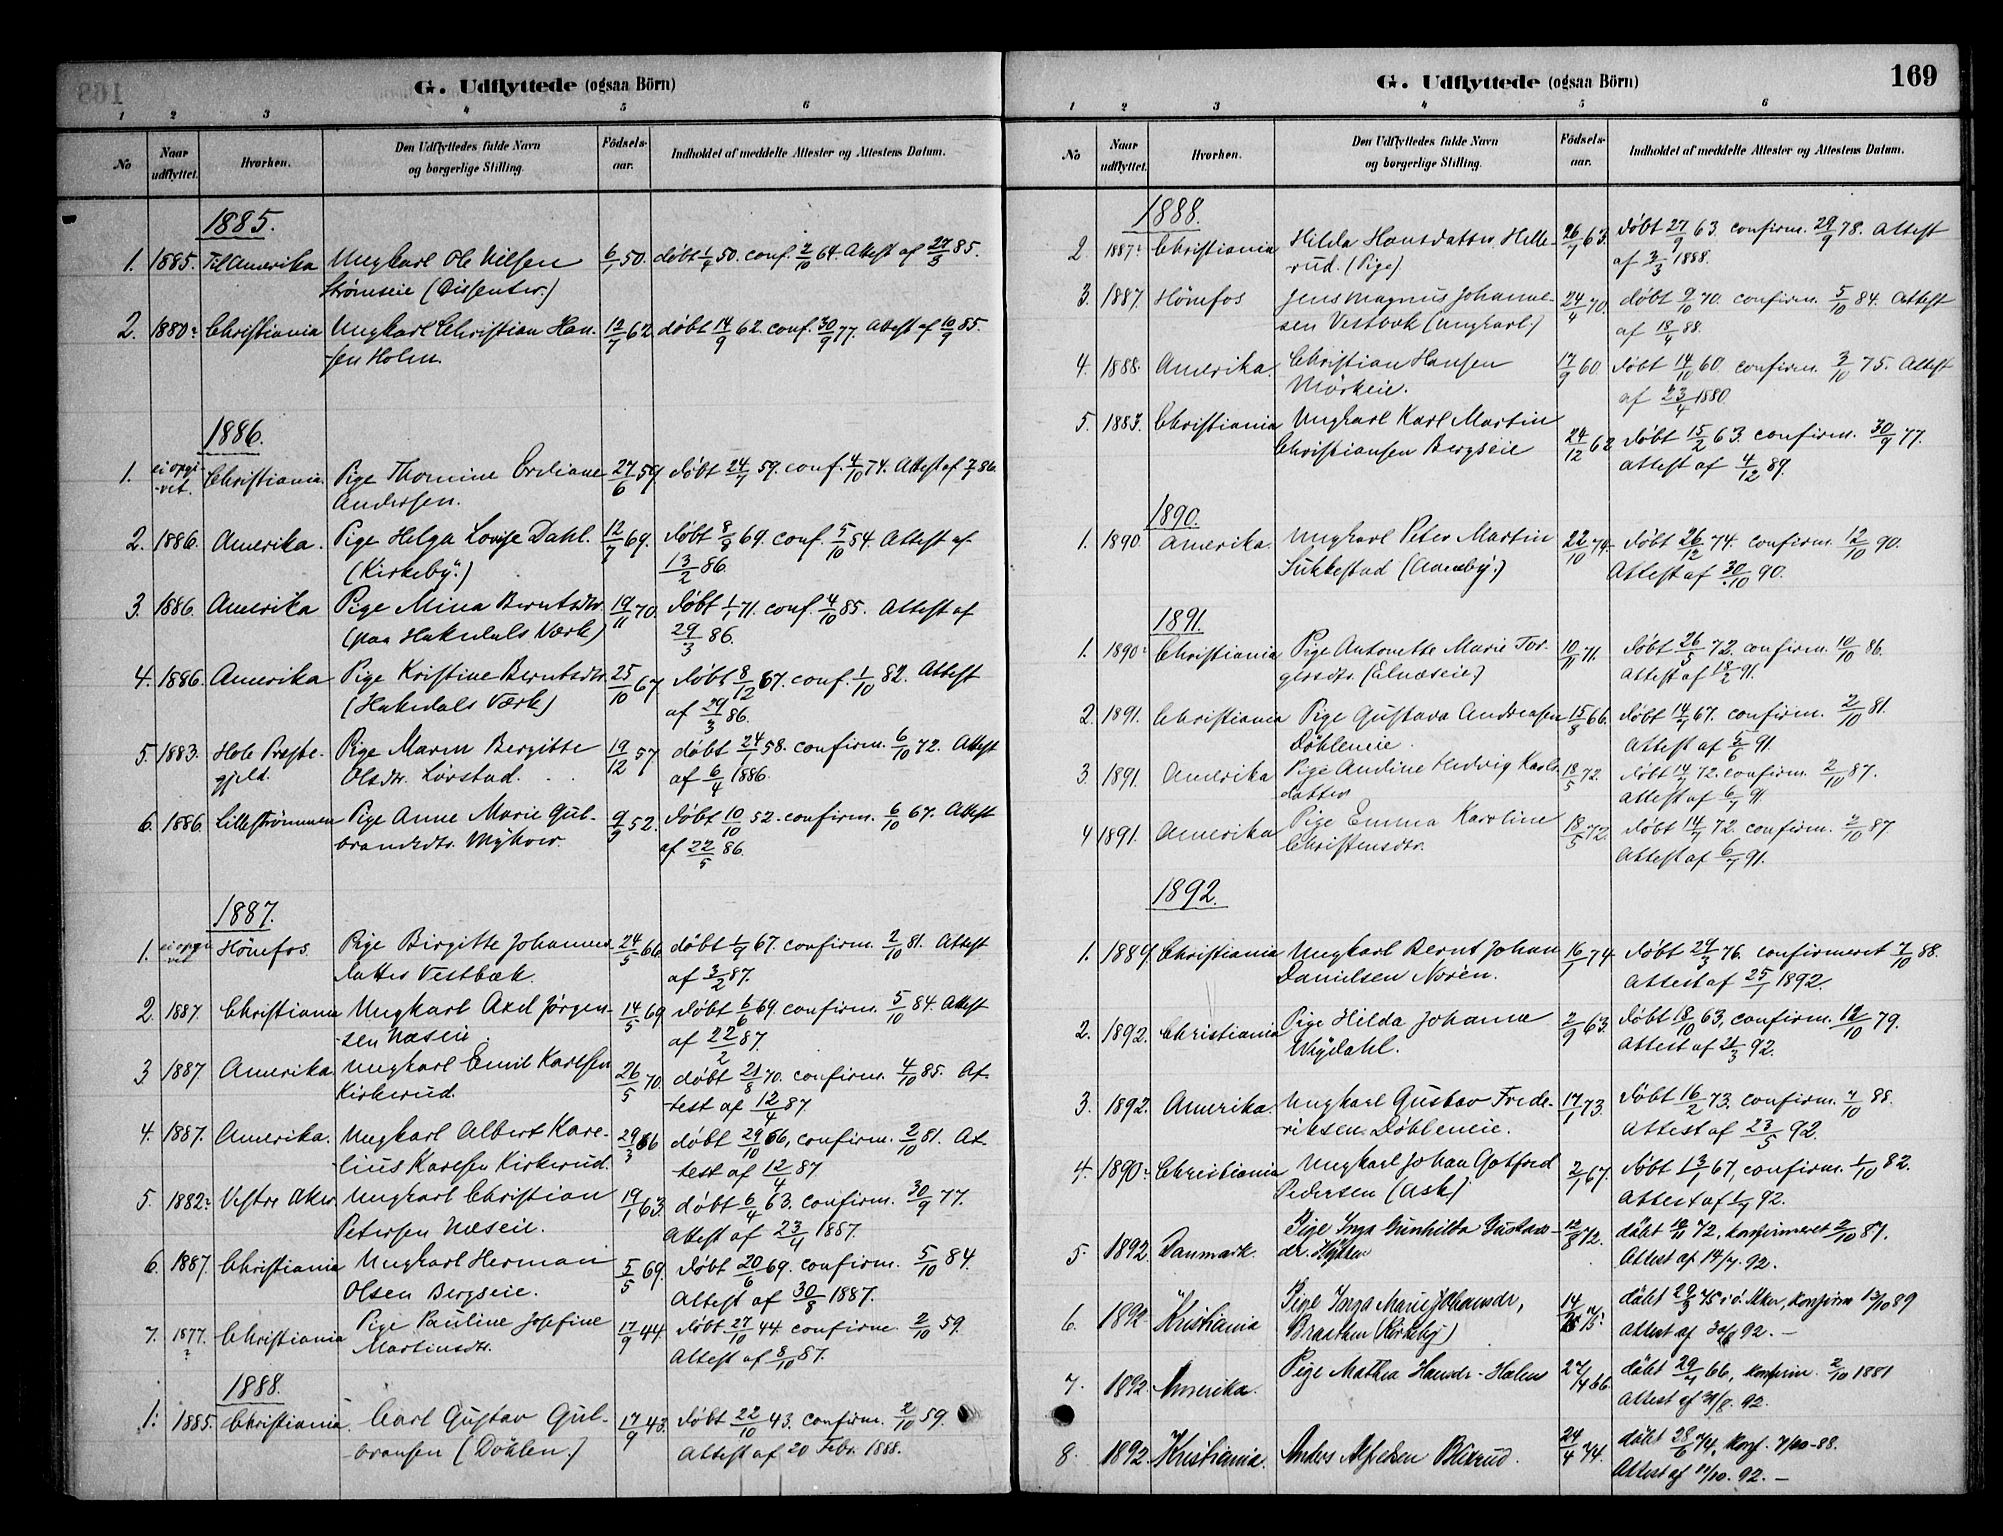 G. Udflyttede (ogsaa Börn)
1 2 3 4 5 6
No
Naar udflyttet.
Hvorhen.
Den Udflyttedes fulde Navn og borgerlige Stilling.
Födselsaar.
Indholdet af meddelte Attester og Attestens Datum.
1885.
1. 1885. Til Amerika Ungkarl Ole Nilsen 6/1 50. döbt 1/4 50. conf. 2/10 64. Attest af 27/3 85.
Strömseie (Dissenter.)
2. 1880? Christiania Ungkarl Christian Han- 12/7 62 döbt 14/9 62. conf. 30/9 77. Attest af 10/9 85.
sen Holm.
1886.
1. ei opgi- Christiania. Pige Thomine 27/6 59 döbt 24/7 59. conf. 4/10 74. Attest af 86.
vet. Andersen.
2. 1886. Amerika. Pige Helga Lovise Dahl. 12/7 69. döbt 8/8 69. conf. 5/10 54. Attest af
(Kirkeby.) 13/2 86.
3. 1886. Amerika Pige Mina Berntsdtr. 19/11 70. döbt 1/1 71. conf. 4/10 85. Attest af
(paa Hakedals Værk) 29/3 86.
4. 1886. Amerika Pige Kristine Berntsdtr. 25/10 67 döbt 8/12 67. conf. 1/10 82. Attest
(Hakedals Værk) af 29/3 86.
5. 1883. Hole Præste- Pige Maren Bergitte 19/12 57 döbt 24/1 58. confirm. 6/10 72. Attest
gjeld. Olsdtr. Lörstad. af 6/4 1886.
6. 1886. Lilleströmmen Pige Anne Marie Gul- 9/9 52. döbt 10/10 52. confirm. 6/10 67. Attest
brandsdtr. af 22/5 86.
1887.
1. ei opgi- Hönefos. Pige Birgitte Johannes- 24/5 66. döbt 1/9 67. confirm. 2/10 81. Attest
vet datter Vestbæk. af 3/2 87.
2. 1887. Christiania Ungkarl Axel Jörgen- 14/5 69 döbt 6/6 69. confirm. 5/10 84. Attest
sen Næseie. af 22/2 87.
3 1887. Amerika. Ungkarl Emil Karlsen 26/5 70. döbt 21/8 70. confirm. 4/10 85. At-
Kirkerud. test af 12/4 87
4. 1887. Amerika. Ungkarl Albert Kare- 29/3 66 döbt 29/10 66, confirm. 2/10 81. At-
lius Karlsen Kirkerud. test af 12/4 87
5. 1882? Vestre Aker Ungkarl Christian 19/1 63 döbt 6/4 63. confirm. 30/9 77.
Petersen Næseie. Attest af 23/4 1887.
6. 1887. Christiania Ungkarl Herman 5/5 69. döbt 20/6 69. confirm. 5/10 84.
Olsen Bergseie. Attest af 30/8 1887.
7. 1877. ? Christiania Pige Pauline Josefine 17/9 44. döbt 27/10 44. confirm. 2/10 59.
Martinsdtr. Attest af 8/10 87.
1888.
1. 1885. Christiania. Carl Gustav Gul- 17/9 43. döbt 22/10 43. confirm. 2/10 59.
bransen (Döhlen.) Attest af 20 Febr. 1888.
G. Udflyttede (ogsaa Börn) 169
1 2 3 4 5 6
No
Naar udflyttet.
Hvorhen.
Den Udflyttedes fulde Navn og borgerlige Stilling.
Födselsaar.
Indholdet af meddelte Attester og Attestens Datum.
1888.
2 1887? Christiania Hilda Hansdatter Helle- 26/7 63. döbt 27/9 63. confirm. 29/9 78. Attest
rud. (Pige). af 3/3 1888.
3. 1887. Hönefos Jens Magnus Johanne- 24/4 70. döbt 9/10 70. confirm. 5/10 84. Attest
sen Vestbæk (Ungkarl) af 18/4 88.
4. 1888. Amerika. Christian Hansen 17/9 60 döbt 14/10 60. confirm. 3/10 75. Attest
Mörkeie. af 23/4 1880.
5. 1883. Christiania Ungkarl Karl Martin
Christiansen Bergseie 24/12 62 döbt 15/2 63. confirm. 30/9 77.
Attest af 4/12 89.
1890.
1. 1890. Amerika. Ungkarl Peter Martin 22/10 74. döbt 26/12 74. confirm. 12/10 90.
Sukkestad (Aaneby.) Attest af 30/10 90.
1891.
1. 1890? Christiania Pige Antonette Marie Tor- 10/1 71. döbt 26/3 72. confirm. 10/10 86.
gersdtr. (Elnæseie) Attest af 18/2 91.
2. 1891. Christiania Pige Gustava Andreasen 15/8 66. döbt 14/7 67. confirm. 2/10 81.
Döhleneie. Attest af 5/6 91.
3. 1891. Amerika Pige Andine Hedvig Karls- 18/5 72. döbt 14/7 72. confirm. 2/10 87.
datter Attest af 6/7 91
4 1891. Amerika Pige Emma Karoline 18/5 72. döbt 14/7 72. confirm. 2/10 87
Christensdtr. Attest af 6/7 91.
1892.
1. 1889. Christiania Ungkarl Bernt Johan 16/1 74. döbt 29/3 76. confirmeret 7/10 88.
Danielsen Norén. Attest af 25/1 1892.
2. 1892. Christiania Pige Hilda Johanne 2/9 63. döbt 18/10 63, confirm. 12/10 79.
Nydahl. Attest af 21/3 92.
3. 1892. Amerika. Ungkarl Gustav Frede- 17/1 73. döbt 16/2 73. confirm. 7/10 88.
riksen Döhleneie. Attest af 23/5 92.
4. 1890? Christiania Ungkarl Johan Gotfred 2/1 67. döbt 13/1 67, confirm. 1/10 82.
Pedersen (Ask) Attest af 1/7 92.
5. 1892. Danmark. Pige Inga Gunhilda Gustavs- 12/8 72. döbt 10/11 72, konfirmeret 2/10 87.
dr. Attest af 14/7. 92.
6. 1892 Kristiania Pige Inga Marie Johansdr, 14/2 75. döbt 29/3 75 i ö. Aker, konfirm 13/10 89
Braathen (Kirkeby) Attest af 30/6 92. —
7. 1892. Amerika. Pige Mathea Hansdr. Holm 66 döbt 29/7 66, konfirm. 2/10 1881
Attest af 31/8. 92.
8. 1892. Kristiania. Anders Alfredsen 24/4 74. döbt 28/6 74, konf. 7/10-88.
Attest af 11/10. 92. —